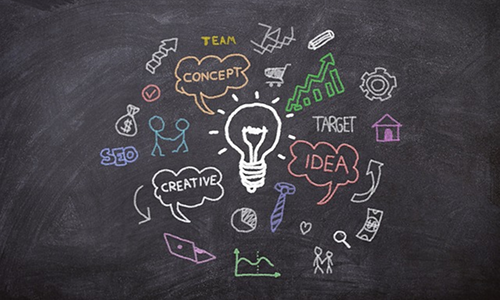 TEAM
CONCEPT
TARGET
IDEA
SEO
CREATIVE